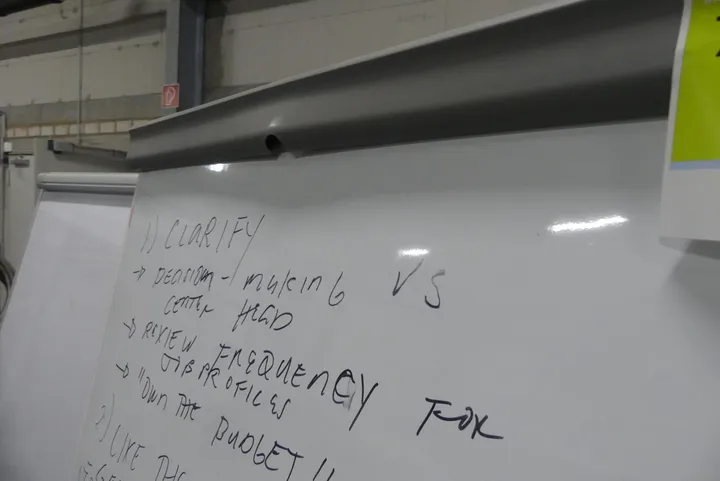 1) CLARIFY
→ DECISION-MAKING VS
CENTER HEAD
→ REVIEW FREQUENCY FOR
JOB PROFILES
→ "OWN THE BUDGET"
2) LIKE THE